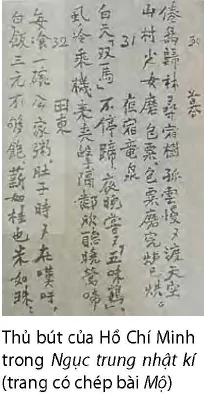 30 暮
倦鳥歸林尋宿樹孤雲慢々渡天空
山村少女磨包粟包粟磨完炉已烘。
31
夜宿龍泉
白天“双馬”不停蹄夜晚嘗々“五味鷄”
虱冷乘機來夾擊隔鄰欣聽曉鶯啼
32
田東
每飡一碗公家粥肚子時々在嘆吁,
白飯三元不够飽薪如桂也米如珠。
Thủ bút của Hồ Chí Minh
trong Ngục trung nhật kí
(trang có chép bài Mộ)